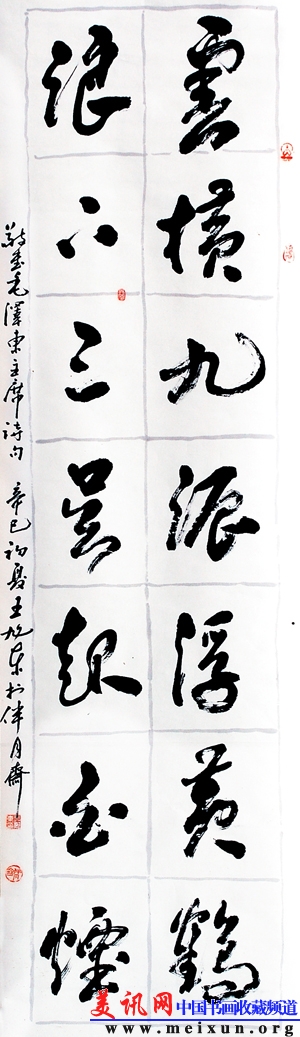 雲橫九派浮黃鶴
浪下三吳起白煙
敬書毛澤東主席詩句 辛巳初夏王旭東於伴月齋
美讯网
中国书画收藏频道
www.meixun.org